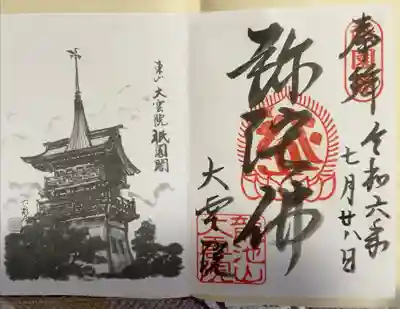 奉拝
令和六年
七月廿八日
弥陀佛
大雲院
東山 大雲院 祇園閣